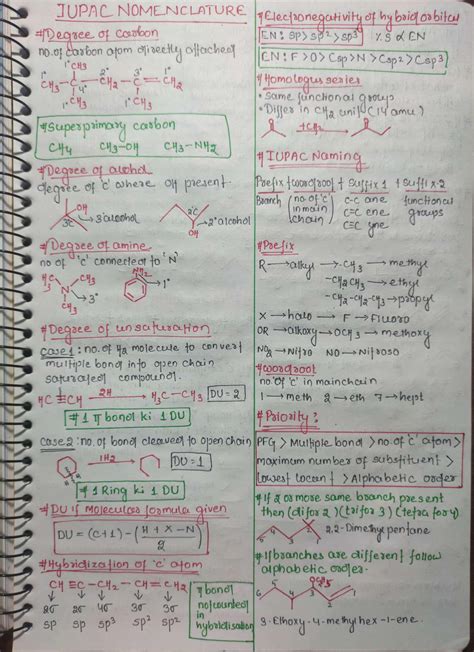 IUPAC NOMENCLATURE
#Degree of Carbon
no. of carbon atom directly attached
1° CH3 2° 1°
CH3 - C - CH - CH = CH2
1° 4°
CH3 CH3
1° 1°
#Superprimary carbon
CH4 CH3-OH CH3-NH2
#Degree of alcohol
degree of 'c' where OH present
3°c 2°c
OH → 3° alcohol OH → 2° alcohol
#Degree of amine
no of 'c' connected to 'N'
CH3 CH3 NH2
N → 3° → 1°
CH3
#Degree of unsaturation
Case 1: no. of H2 molecule to convert
multiple bond into open chain
saturated compound.
HC ≡ CH 2H → H3C-CH3 DU = 2
#1 π bond ki 1 DU
Case 2: no. of bond cleaved to open chain
1H2 → DU = 1
#1 Ring ki 1 DU
#DU if Molecular formula given
DU = (C+1) - (H + X - N / 2)
#Hybridization of 'c' atom
CH ≡ C - CH2 - CH = CH2
↓ ↓ ↓ ↓ ↓
2σ 2σ 4σ 3σ 3σ
sp sp sp3 sp2 sp2
π bond
not counted
in
hybridisation
#Electronegativity of hybrid orbital
EN: sp > sp2 > sp3 %S α EN
EN: F > O > Csp > N > Csp2 > Csp3
#Homologus series
• Same functional group
• Differ in CH2 unit (14 amu)
+CH2 →
#IUPAC Naming
Prefix + wordroot + Suffix 1 + Suffix 2
Branch (no. of 'c' in main chain) C-C ane C=C ene C≡C yne functional groups
#Prefix
R → alkyl → CH3 → methyl
→ CH2-CH3 → ethyl
→ CH2-CH2-CH3 → propyl
X → halo → F → Fluoro
OR → alkoxy → OCH3 → methoxy
NO2 → Nitro NO → Nitroso
#wordroot
no. of 'c' in main chain
1 → meth 2 → eth 7 → hept
#Priority:
PFG > Multiple bond > no. of 'c' atom >
maximum number of substituent >
lowest locant > Alphabetic order
#If 2 or more same branch present
then (di for 2) (tri for 3) (tetra for 4)
2,2-Dimethyl pentane
#If branches are different follow
alphabetic order.
3-Ethoxy-4-methyl hex-1-ene.